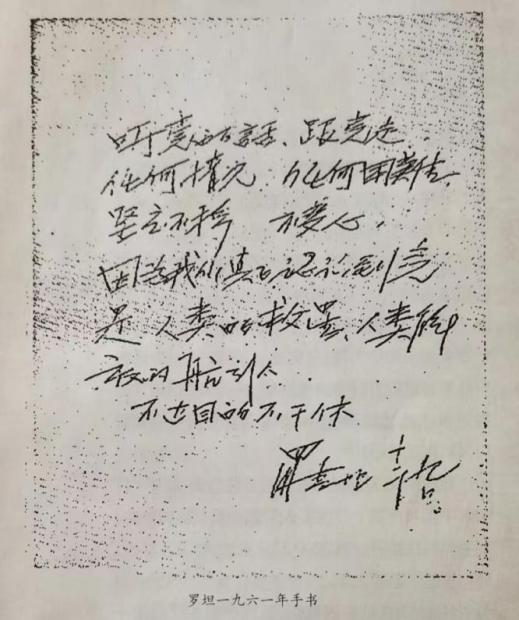 听党的話、跟党走
任何情况 任何困难
坚定不移 不变心
因为我们真正认识到党
是人类的救星、人类解
放的 引人
不达目的不干休
罗 坦
罗坦一九六一年手书